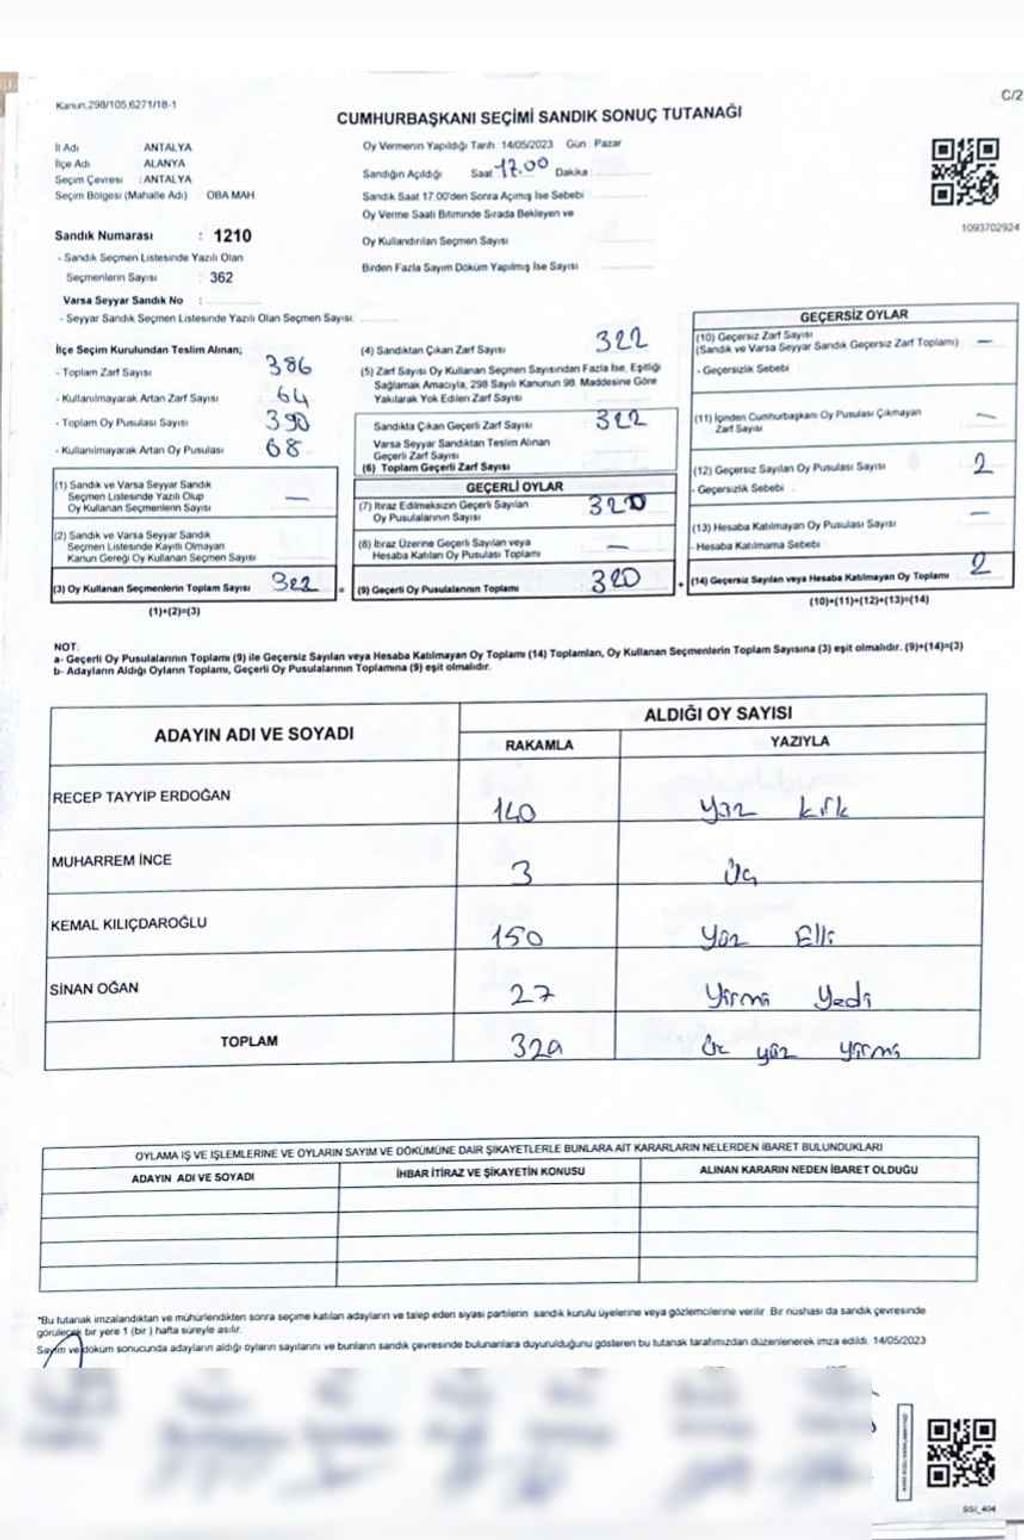 Kanun:298/105,6271/18-1
C/2
CUMHURBAŞKANI SEÇİMİ SANDIK SONUÇ TUTANAĞI
İl Adı ANTALYA
İlçe Adı ALANYA
Seçim Çevresi : ANTALYA
Seçim Bölgesi (Mahalle Adı) OBA MAH
Sandık Numarası : 1210
- Sandık Seçmen Listesinde Yazılı Olan
Seçmenlerin Sayısı : 362
Varsa Seyyar Sandık No :
- Seyyar Sandık Seçmen Listesinde Yazılı Olan Seçmen Sayısı:
Oy Vermenin Yapıldığı Tarih : 14/05/2023 Gün : Pazar
Sandığın Açıldığı Saat 17.00 Dakika
Sandık Saat 17.00'den Sonra Açımış İse Sebebi
Oy Verme Saati Bitiminde Sırada Bekleyen ve
Oy Kullandırılan Seçmen Sayısı
Birden Fazla Sayım Döküm Yapılmış İse Sayısı
1093702924
İlçe Seçim Kurulundan Teslim Alınan;
- Toplam Zarf Sayısı 386
- Kullanılmayarak Artan Zarf Sayısı 64
- Toplam Oy Pusulası Sayısı 390
- Kullanılmayarak Artan Oy Pusulası 68
(1) Sandık ve Varsa Seyyar Sandık
Seçmen Listesinde Yazılı Olup
Oy Kullanan Seçmenlerin Sayısı —
(2) Sandık ve Varsa Seyyar Sandık
Seçmen Listesinde Kayıtlı Olmayan
Kanun Gereği Oy Kullanan Seçmen Sayısı
(3) Oy Kullanan Seçmenlerin Toplam Sayısı 322 =
(1)+(2)=(3)
(4) Sandıktan Çıkan Zarf Sayısı 322
(5) Zarf Sayısı Oy Kullanan Seçmen Sayısından Fazla İse, Eşitliği
Sağlamak Amacıyla, 298 Sayılı Kanunun 98. Maddesine Göre
Yakılarak Yok Edilen Zarf Sayısı
Sandıkta Çıkan Geçerli Zarf Sayısı 322
Varsa Seyyar Sandıktan Teslim Alınan
Geçerli Zarf Sayısı
(6) Toplam Geçerli Zarf Sayısı
GEÇERLİ OYLAR
(7) İtiraz Edilmeksizin Geçerli Sayılan
Oy Pusulalarının Sayısı 320
(8) İtiraz Üzerine Geçerli Sayılan veya
Hesaba Katılan Oy Pusulası Toplamı —
(9) Geçerli Oy Pusulalarının Toplamı 320 +
GEÇERSİZ OYLAR
(10) Geçersiz Zarf Sayısı
(Sandık ve Varsa Seyyar Sandık Geçersiz Zarf Toplamı) —
- Geçersizlik Sebebi
(11) İçinden Cumhurbaşkanı Oy Pusulası Çıkmayan
Zarf Sayısı —
(12) Geçersiz Sayılan Oy Pusulası Sayısı 2
- Geçersizlik Sebebi
(13) Hesaba Katılmayan Oy Pusulası Sayısı —
- Hesaba Katılmama Sebebi
(14) Geçersiz Sayılan veya Hesaba Katılmayan Oy Toplamı 2
(10)+(11)+(12)+(13)=(14)
NOT:
a- Geçerli Oy Pusulalarının Toplamı (9) ile Geçersiz Sayılan veya Hesaba Katılmayan Oy Toplamı (14) Toplamları, Oy Kullanan Seçmenlerin Toplam Sayısına (3) eşit olmalıdır. (9)+(14)=(3)
b- Adayların Aldığı Oyların Toplamı, Geçerli Oy Pusulalarının Toplamına (9) eşit olmalıdır.
ADAYIN ADI VE SOYADI ALDIĞI OY SAYISI
RAKAMLA YAZIYLA
RECEP TAYYİP ERDOĞAN 140 yüz kırk
MUHARREM İNCE 3 üç
KEMAL KILIÇDAROĞLU 150 yüz Elli
SİNAN OĞAN 27 Yirmi Yedi
TOPLAM 320 üç yüz yirmi
OYLAMA İŞ VE İŞLEMLERİNE VE OYLARIN SAYIM VE DÖKÜMÜNE DAİR ŞİKAYETLERLE BUNLARA AİT KARARLARIN NELERDEN İBARET BULUNDUKLARI
ADAYIN ADI VE SOYADI İHBAR İTİRAZ VE ŞİKAYETİN KONUSU ALINAN KARARIN NEDEN İBARET OLDUĞU
*Bu tutanak imzalandıktan ve mühürlendikten sonra seçime katılan adayların ve talep eden siyasi partilerin sandık kurulu üyelerine veya gözlemcilerine verilir. Bir nüshası da sandık çevresinde
görülecek bir yere 1 (bir ) hafta süreyle asılır.
Sayım ve döküm sonucunda adayların aldığı oyların sayılarını ve bunların sandık çevresinde bulunanlara duyurulduğunu gösteren bu tutanak tarafımızdan düzenlenerek imza edildi. 14/05/2023